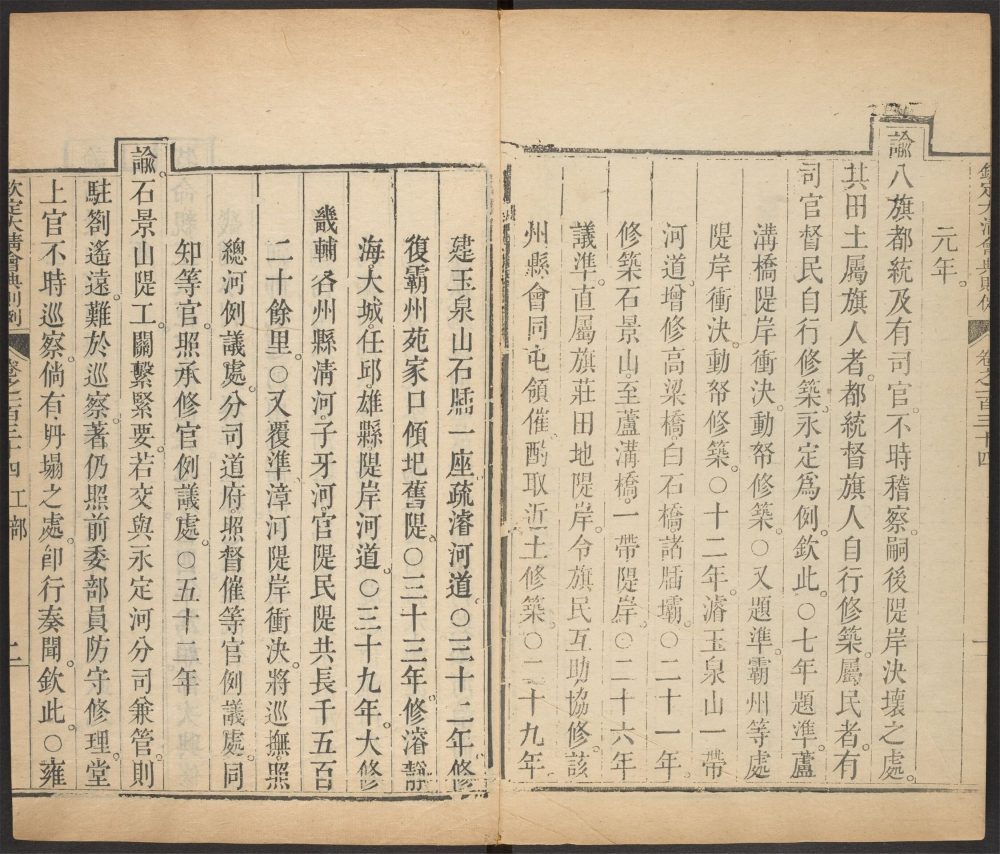 欽定大清會典則例 卷之一百三十四
元年。
諭八旗都統及有司官。不時稽察。嗣後隄岸決壞之處。
其田土屬旗人者。都統督旗人自行修築。屬民者。有
司官督民自行修築。永定爲例。欽此。○七年題準。蘆
溝橋隄岸衝決。動帑修築。○又題準。霸州等處
隄岸衝決。動帑修築。○十二年。濬玉泉山一帶
河道。增修高梁橋白石橋諸牐壩。○二十一年。
修築石景山。至蘆溝橋一帶隄岸。○二十六年
議準。直屬旗莊田地隄岸。令旗民互助協修。該
州縣會同屯領催。酌取近土修築。○二十九年
建玉泉山石牐一座。疏濬河道。○三十二年。修
復霸州苑家口傾圮舊隄。○三十三年。修濬靜
海大城。任邱。雄縣隄岸河道。○三十九年。大修
畿輔各州縣清河。子牙河。官隄民隄共長千五百
二十餘里。○又覆準。漳河隄岸衝決。將巡撫。照
總河例議處。分司道府。照督催等官例議處。同
知等官。照承修官例議處。○五十二年
諭。石景山隄工。關繫緊要。若交與永定河分司兼管。則
駐劄遙遠。難於巡察。著仍照前委部員防守修理。堂
上官不時巡察。倘有坍塌之處。卽行奏聞。欽此。○雍
欽定大清會典則例 卷之一百三十四 工部 二